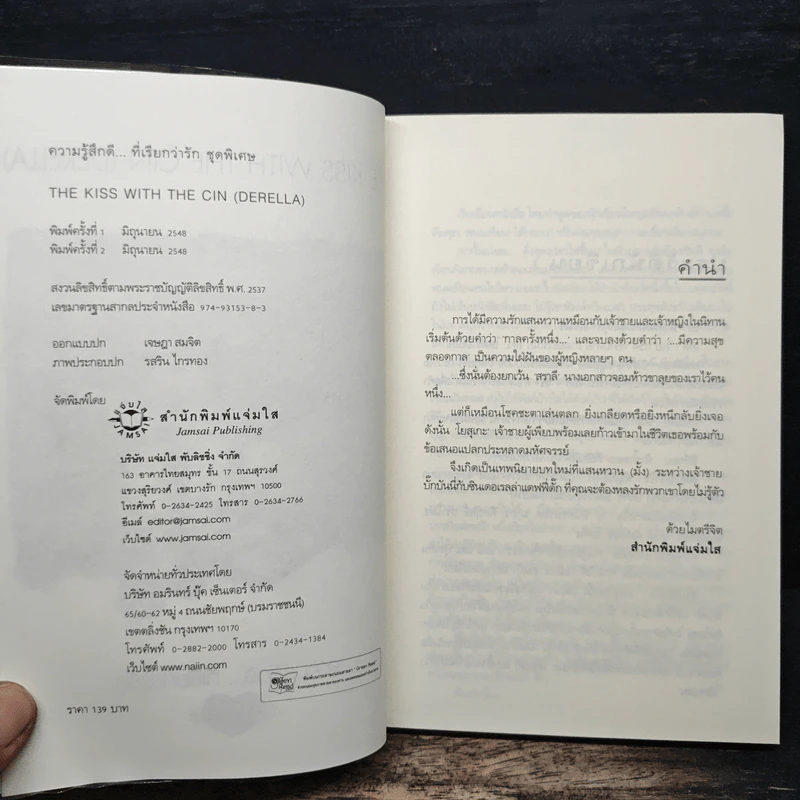 ความรู้สึกดี... ที่เรียกว่ารัก ชุดพิเศษ
THE KISS WITH THE CIN (DERELLA)
พิมพ์ครั้งที่ 1 มิถุนายน 2548
พิมพ์ครั้งที่ 2 มิถุนายน 2548
สงวนลิขสิทธิ์ตามพระราชบัญญัติลิขสิทธิ์ พ.ศ. 2537
เลขมาตรฐานสากลประจำหนังสือ 974-93153-8-3
ออกแบบปก เจษฎา สมจิต
ภาพประกอบปก รสริน ไกรทอง
จัดพิมพ์โดย
แจ่มใส
JAMSAI
สำนักพิมพ์แจ่มใส
Jamsai Publishing
บริษัท แจ่มใส พับลิชชิ่ง จำกัด
163 อาคารไทยสมุทร ชั้น 17 ถนนสุรวงศ์
แขวงสุริยวงศ์ เขตบางรัก กรุงเทพฯ 10500
โทรศัพท์ 0-2634-2425 โทรสาร 0-2634-2766
อีเมล์ editor@jamsai.com
เว็บไซต์ www.jamsai.com
จัดจำหน่ายทั่วประเทศโดย
บริษัท อมรินทร์ บุ๊ค เซ็นเตอร์ จำกัด
65/60-62 หมู่ 4 ถนนชัยพฤกษ์ (บรมราชชนนี)
เขตตลิ่งชัน กรุงเทพฯ 10170
โทรศัพท์ 0-2882-2000 โทรสาร 0-2434-1384
เว็บไซต์ www.naiin.com
Green Read
ราคา 139 บาท
คำนำ
การได้มีความรักแสนหวานเหมือนกับเจ้าชายและเจ้าหญิงในนิทาน
เริ่มต้นด้วยคำว่า 'กาลครั้งหนึ่ง...' และจบลงด้วยคำว่า '...มีความสุข
ตลอดกาล' เป็นความใฝ่ฝันของผู้หญิงหลายๆ คน
...ซึ่งนั่นต้องยกเว้น 'สราลี' นางเอกสาวจอมห้าวขาลุยของเราไว้คน
หนึ่ง...
แต่ก็เหมือนโชคชะตาเล่นตลก ยิ่งเกลียดหรือยิ่งหนีกลับยิ่งเจอ
ดังนั้น 'โยสุเกะ' เจ้าชายผู้เพียบพร้อมเลยก้าวเข้ามาในชีวิตเธอพร้อมกับ
ข้อเสนอแปลกประหลาดมหัศจรรย์
จึงเกิดเป็นเทพนิยายบทใหม่ที่แสนหวาน (มั้ง) ระหว่างเจ้าชาย
บั๊กบันนี่กับซินเดอเรลล่าแดฟฟี่ดั๊ก ที่คุณจะต้องหลงรักพวกเขาโดยไม่รู้ตัว
ด้วยไมตรีจิต
สำนักพิมพ์แจ่มใส